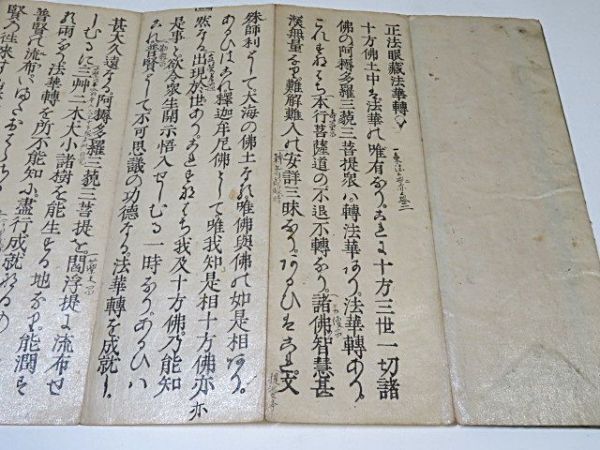 正法眼藏法華轉
十方佛土中は法華の唯有なりこれに十方三世一切諸
佛の阿耨多羅三藐三菩提衆は轉法華あり法華轉あり
これすなはち本行菩薩道の不退不轉なり諸佛智慧甚
深無量なり難解難入の安詳三昧なりあるひはこれ文
殊師利として大海の佛土なれ唯佛與佛の如是相あり
あるひはこれ釋迦牟尼佛として唯我知是相十方佛亦
然なる出現於世ありこれすなはち我及十方佛乃能知
是事と欲令衆生開示悟入せしむる一時なりあるひは
これ普賢として不可思議の功德なる法華轉を成就し
甚大久遠なる阿耨多羅三藐三菩提を閻浮提に流布せ
しむるに三艸二木大小諸樹を能生する地なり能潤す
る雨なり法華轉を所不能知に盡行成就なるのみ
普賢の流布いまだおはらざる
賢の往來する